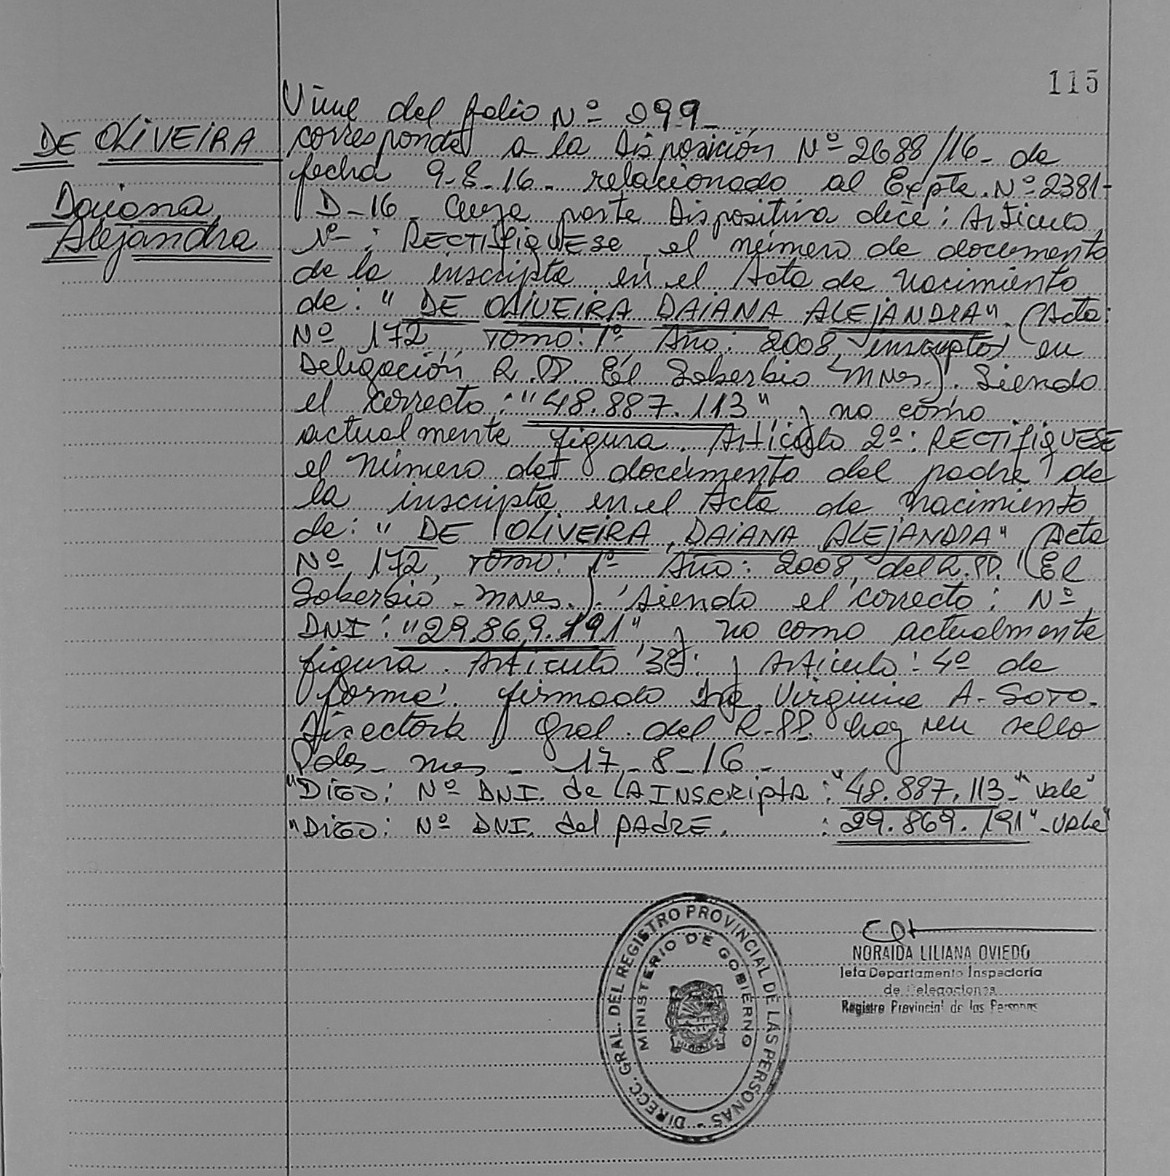 115
DE OLIVEIRA
Daiana
Alejandra
Viene del folio Nº 299_
corresponde a la Disposición Nº 2688/16_ de
fecha 9-8-16_ relacionado al Expte. Nº 2381-
D-16_ Cuya parte Dispositiva dice: Articulo
: RECTIFIQUESE, el número de documento
de la inscripta en el Acta de Nacimiento
de: " DE OLIVEIRA DAIANA ALEJANDRA". (Acta
Nº 172 Tomo: 1º Año: 2008, inscripto en
Delegación R.PP. El Soberbio Mnes.). Siendo
el correcto: "48.887.113" y no como
actualmente figura. Articulo 2º: RECTIFIQUESE
el número del documento del padre de
la inscripta en el Acta de nacimiento
de: " DE OLIVEIRA DAIANA ALEJANDRA" (Acta
Nº 172, Tomo: 1º Año: 2008, del R.PP. (El
Soberbio - Mnes.). Siendo el correcto: Nº
DNI: "29.869.191" y no como actualmente
figura. Articulo 3º: y Articulo: 4º de
forma. firmado Virginia A. Soto.
Directora Gral. del R.PP. hay un sello
17-8-16_
"Digo: Nº DNI. de LA INScripta: "48.887.113_" vale"
"Digo: Nº DNI. del PADRE. : 29.869.191"_vale"
DIRECC. GRAL. DEL REGISTRO PROVINCIAL DE LAS PERSONAS
MINISTERIO DE GOBIERNO
NORAIDA LILIANA OVIEDO
Jefa Departamento Inspectoría
de Delegaciones
Registro Provincial de las Personas